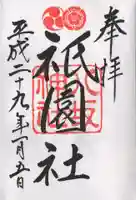 奉拝
祇園社
八坂神社
平成二十九年一月五日